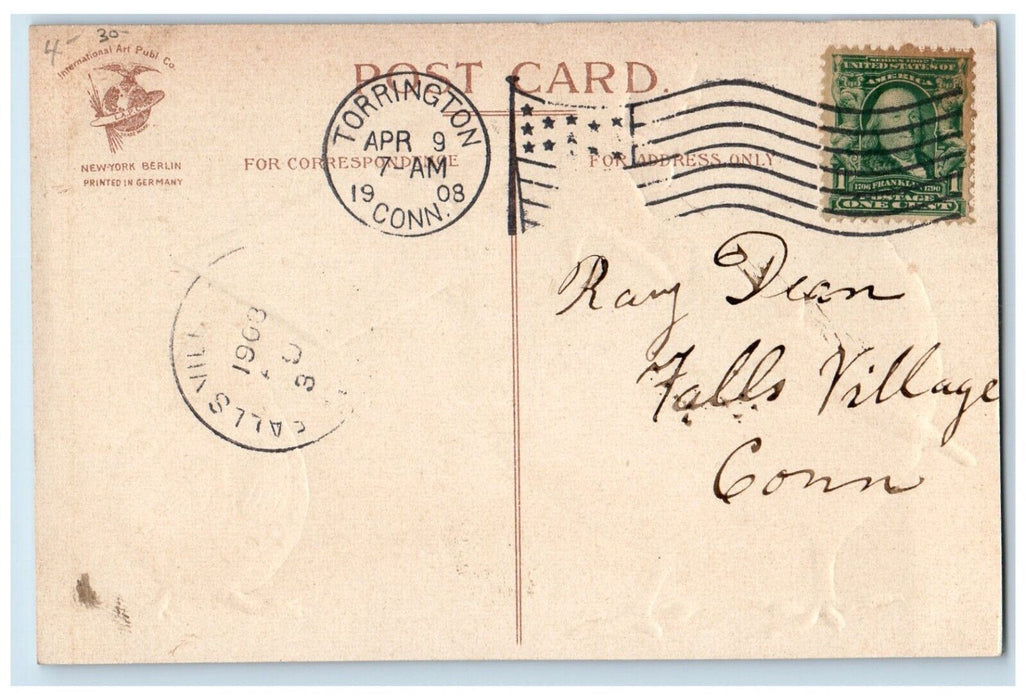 4- 30-
International Art Publ Co.
NEW-YORK BERLIN
PRINTED IN GERMANY
POST CARD.
FOR CORRESPONDENCE
FOR ADDRESS ONLY
TORRINGTON
APR 9
7-AM
19 08
CONN.
SERIES 1902
UNITED STATES OF
AMERICA
1706 FRANKLIN 1790
1 POSTAGE 1
ONE CENT
FALLS VILL
1908
Ray Dean
Falls Village
Conn